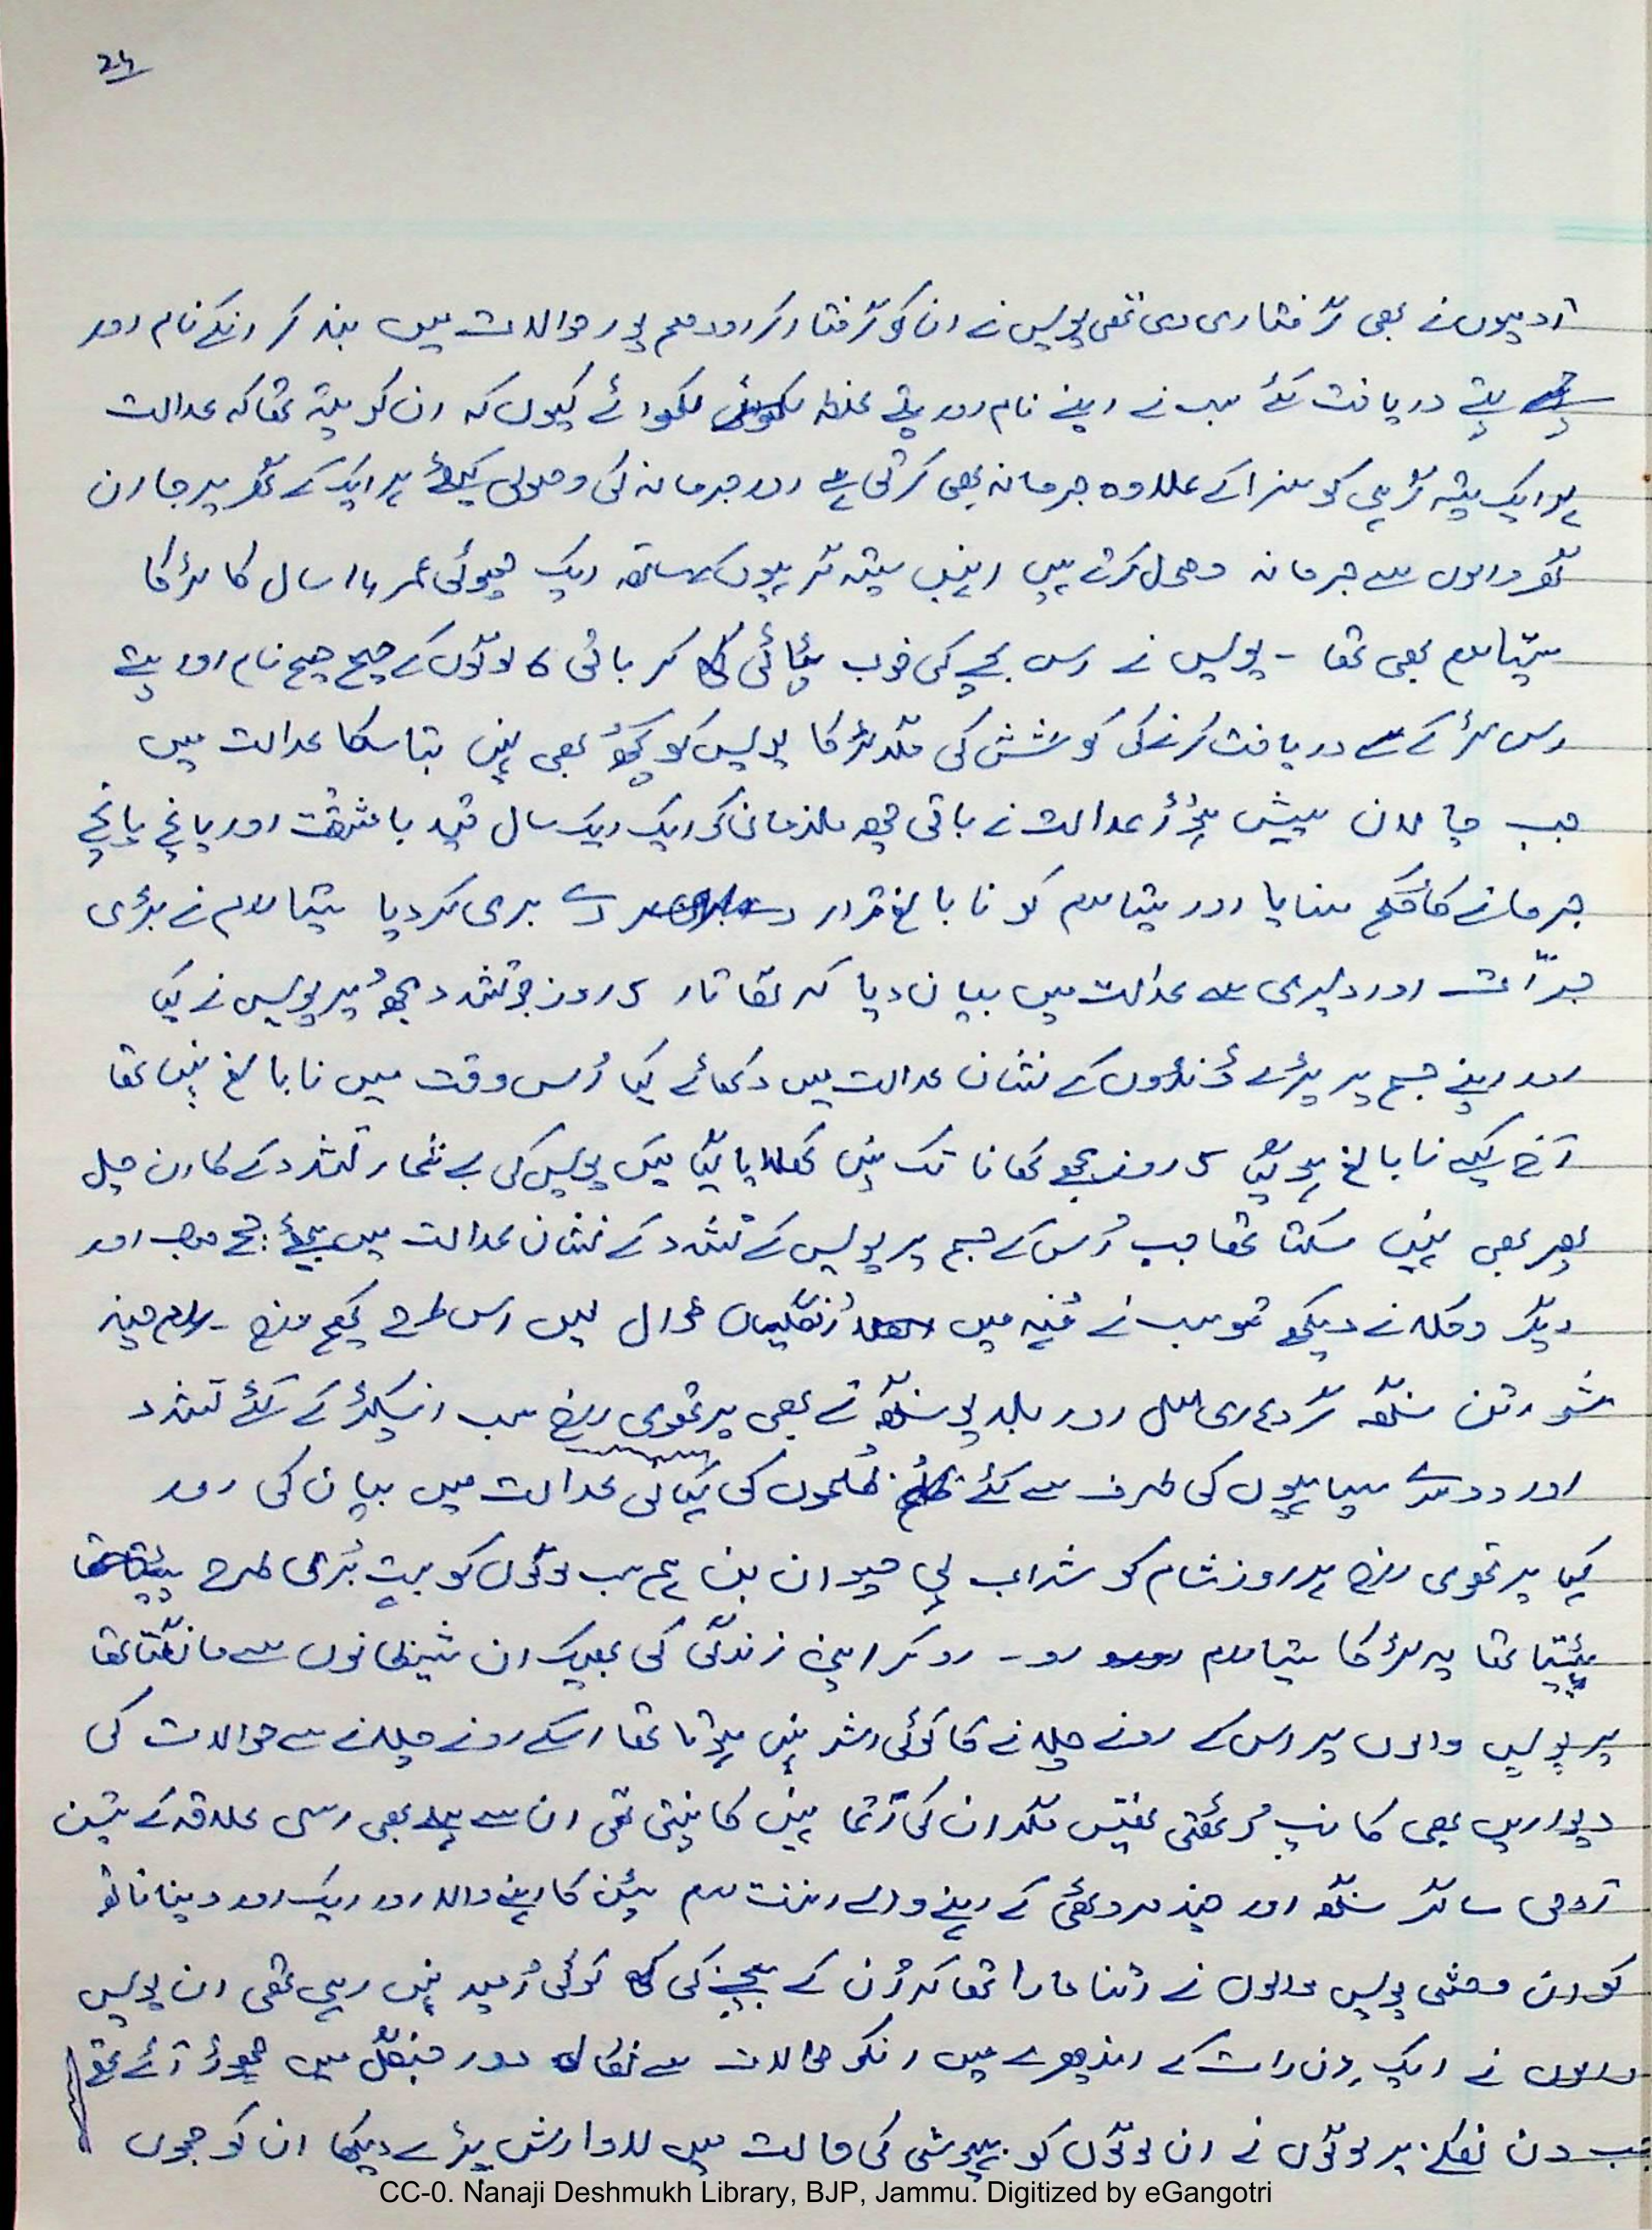 24
آدمیوں نے بھی گرفتاری دی تھی پولیس نے ان کو گرفتار کر اودھم پور حوالات میں بند کر انکے نام اور
پتے دریافت کئے سب نے اپنے نام اور پتے غلط لکھوائے کیوں کہ ان کو پتہ تھا کہ عدالت
ہر ایک ستیہ گرہی کو سزا کے علاوہ جرمانہ بھی کرتی ہے اور جرمانہ کی وصولی کیلئے ہر ایک کے گھر پر جا ان
گھر والوں سے جرمانہ وصول کرتے ہیں انہیں ستیہ گرہیوں کے ساتھ ایک چھوٹی عمر 14 سال کا لڑکا
ستپا رام بھی تھا - پولیس نے اس بچے کی خوب پٹائی کر باقی 6 لوگوں کے صیح صیح نام اور پتے
اس لڑکے سے دریافت کرنے کی کوشش کی مگر لڑکا پولیس کو کچھ بھی نہیں بتا سکا عدالت میں
جب چالان پیش ہؤا عدالت نے باقی چھ ملزمان کو ایک ایک سال قید با مشقت اور پانچ پانچ
جرمانے کا حکم سنایا اور ستپا رام کو نا بالغ قرار دے بری کر دیا ستپا رام نے بڑی
جرّأت اور دلیری سے عدالت میں بیان دیا کہ لگاتار 5 روز جو تشدد مجھ پر پولیس نے کیا
اور اپنے جسم پر پڑے ڈنڈوں کے نشان عدالت میں دکھائے کہا اُس وقت میں نابالغ نہیں تھا
آج کیسے نا بالغ ہو گیا 5 روز مجھے کھانا تک نہیں کھلایا گیا میں پولیس کی بے شمار تشدد کے کارن چل
پھر بھی نہیں سکتا تھا جب اُس کے جسم پر پولیس کے تشدد کے نشان عدالت میں بیٹھے جج صاحب اور
دیگر وکلا نے دیکھے تو سب نے مُنہ میں اُنگلیاں ڈال لیں اس طرح کچھ منج - رام چند
شو رتن سنگھ گردھاری لال اور بلدیو سنگھ نے بھی پرتھوی راج سب انسپکٹر کے کئے تشدد
اور دوسرے سپاہیوں کی طرف سے کئے ظُلموں کی کہانی عدالت میں بیان کی اور
کہا پرتھوی راج ہر روز شام کو شراب پی حیوان بن ہم سب لوگوں کو بہت بُری طرح
پیٹتا تھا یہ لڑکا ستپا رام رو - رو کر اپنی زندگی کی بھیک ان شیطانوں سے مانگتا تھا
پر پولیس والوں پر اس کے رونے چلانے کا کوئی اثر نہیں ہوتا تھا اسکے رونے چلانے سے حوالات کی
دیواریں بھی کانپ اُٹھتی تھیں مگر ان کی آتما نہیں کانپتی تھی ان سے پہلے بھی اسی علاقہ کے تین
آدمی ساگر سنگھ اور چند مروٹھی کے رہنے والے اننت رام پٹن کا رہنے والا اور ایک اور دینا ناتھ
کو ان وحشی پولیس والوں نے اتنا مارا تھا کہ اُن کے بچنے کی کوئی اُمید نہیں رہی تھی ان پولیس
والوں نے ایک دِن رات کے اندھیرے میں انکو حوالات سے نکال دور جنگل میں چھوڑ آئے تھے
جب دن نکلنے پر لوگوں نے ان لوگوں کو بیہوشی کی حالت میں لاوارث پڑے دیکھا ان کو جموں
CC-0. Nanaji Deshmukh Library, BJP, Jammu. Digitized by eGangotri